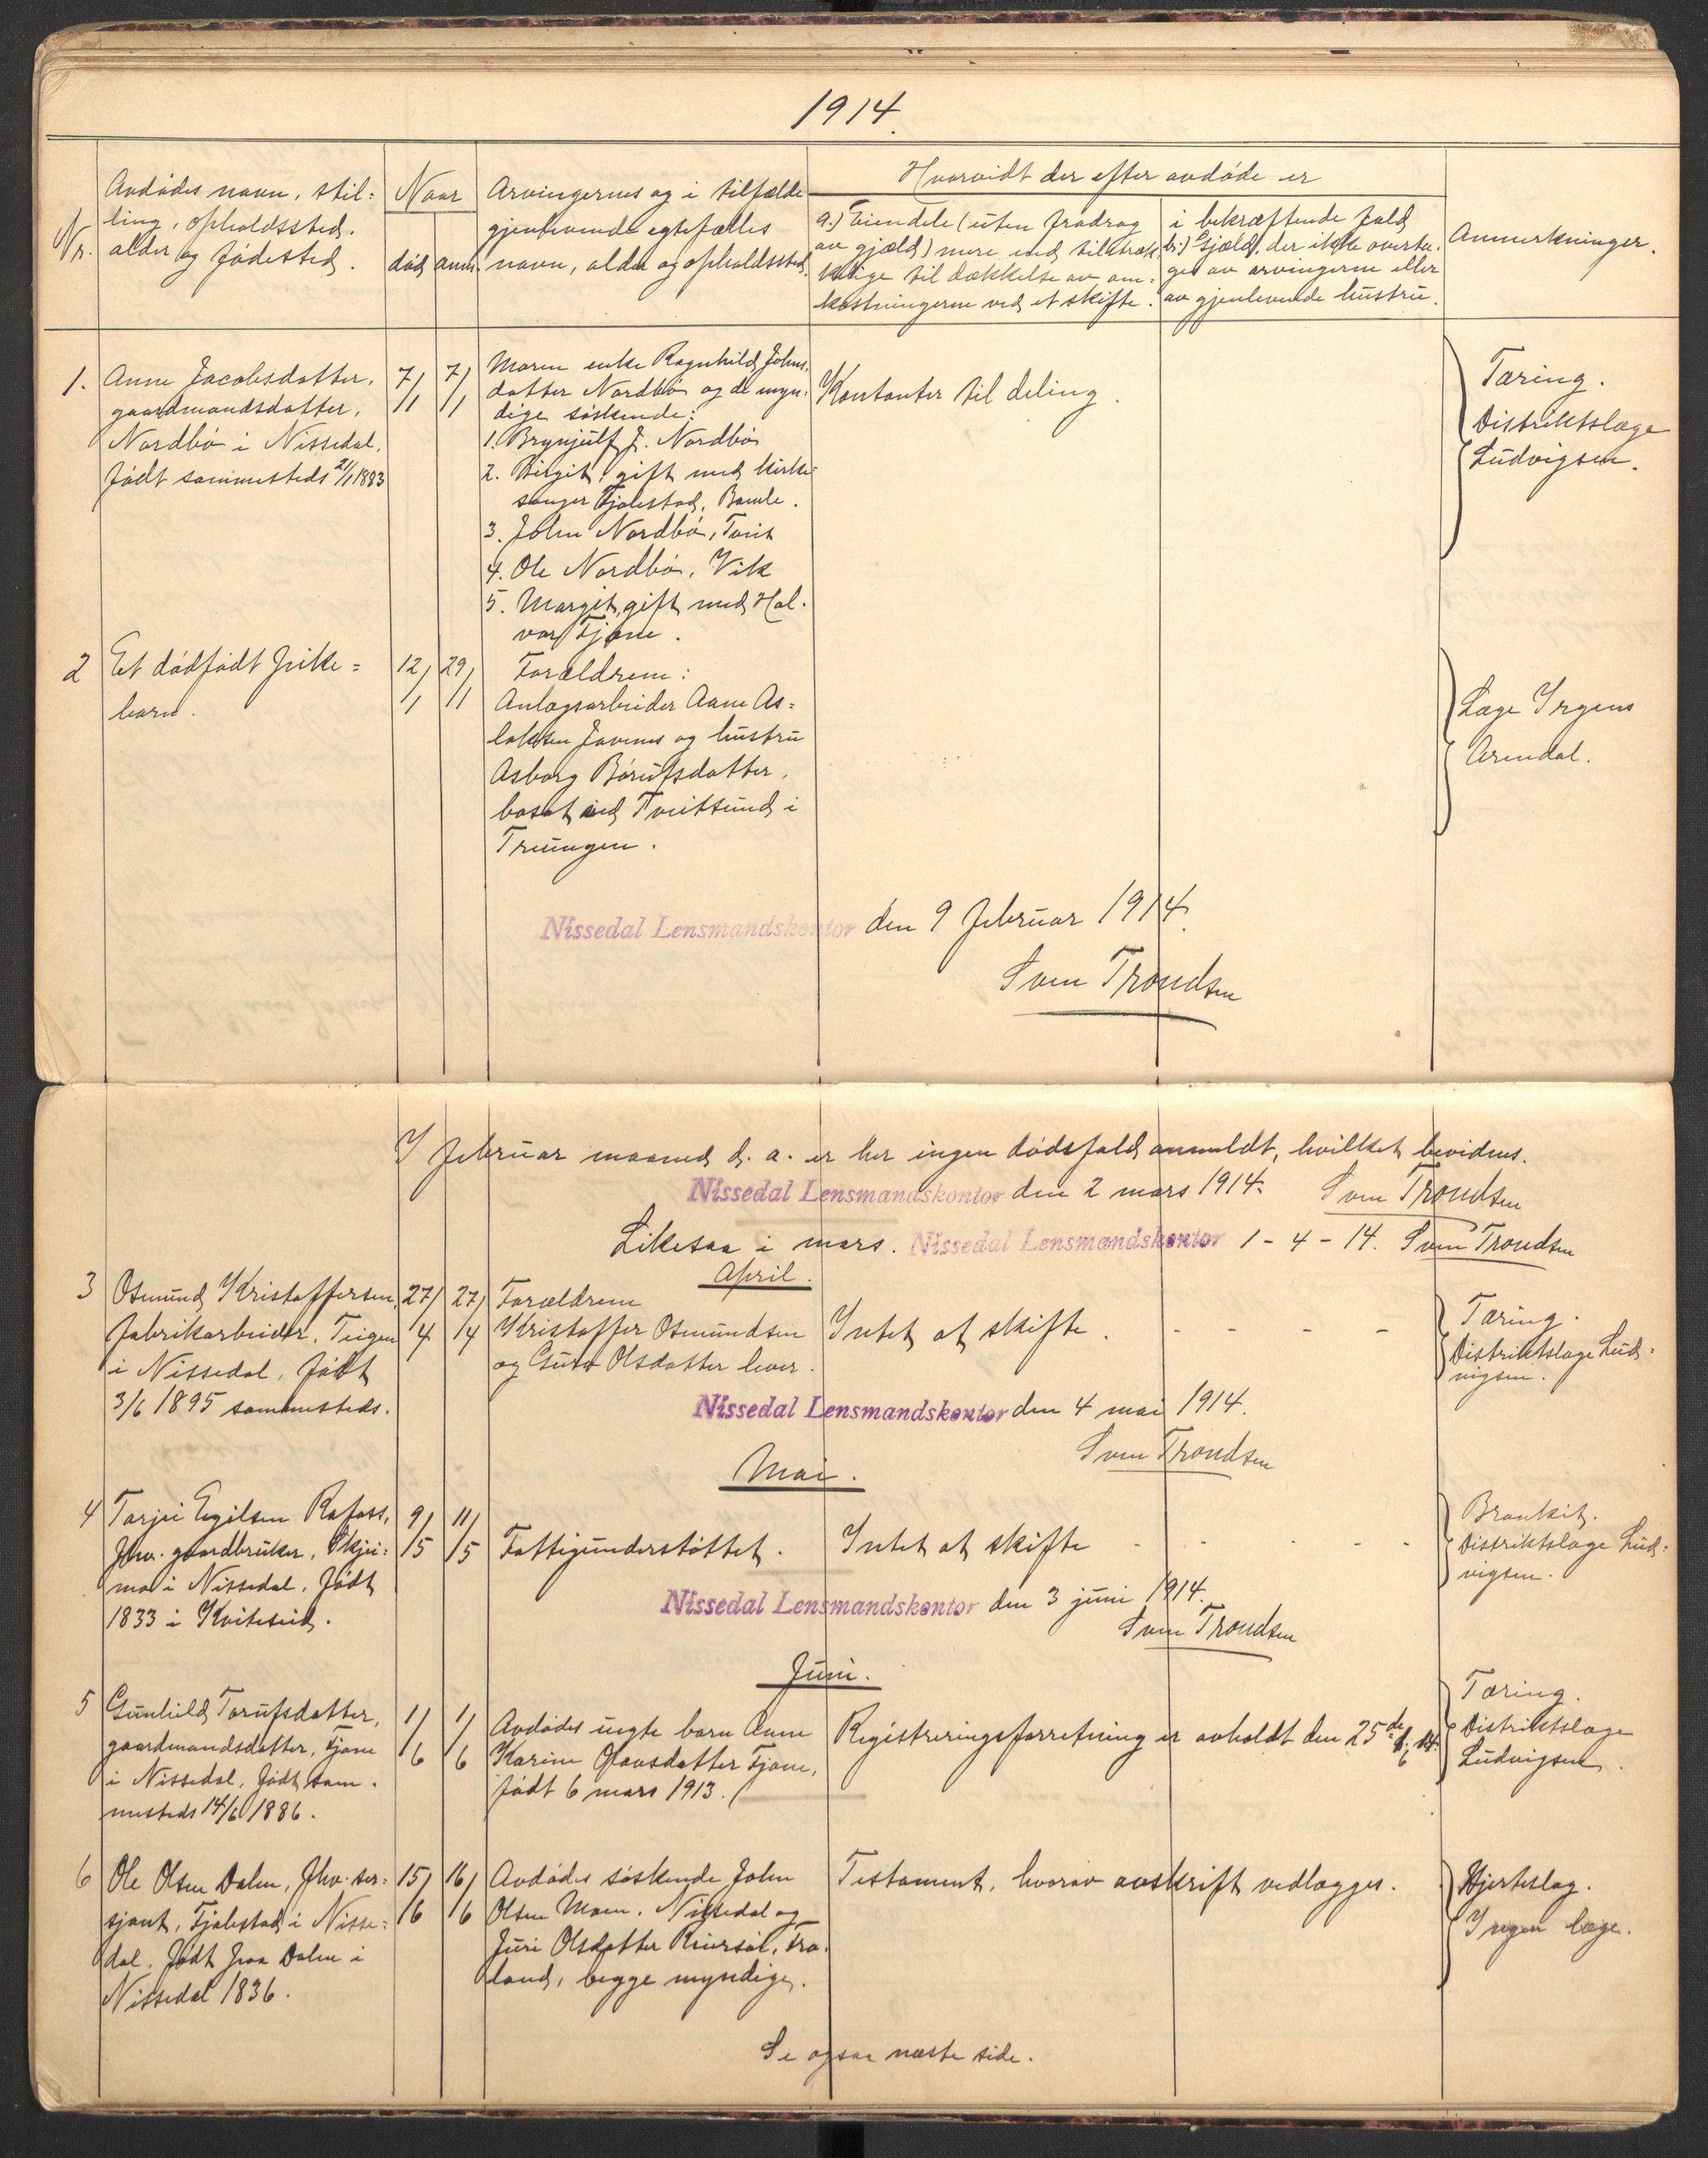 1914.
Nr.
Avdødes navn, stil=
ling, opholdssted.
alder og fødested.
Naar
død
anm.
Arvingernes og i tilfælde
gjenlevende egtefælles
navn, alder og opholdssted.
Hvorvidt der efter avdøde er
a.) Eiendele (uten fradrag
av gjæld) mere end tilstræk-
kelige til dækkelse av om-
kostningerne ved et skifte.
i bekræftende fald
b.) Gjæld, der ikke overta-
ges av arvingerne eller
av gjenlevende hustru.
Anmerkninger.
1.
Anne Jacobsdatter,
gaardmandsdatter,
Nordbø i Nissedal.
født sammesteds 21/1 1883
7/1
7/1
Moren enke Ragnhild Johns-
datter Nordbø og de myn-
dige søskende:
1. Brynjulf J. Nordbø
2. Birgit, gift med kirke=
sanger Fjalestad, Bamle.
3. John Nordbø,
4. Ole Nordbø, Vik
5. Margit, gift med Hal-
vor Tjøne.
Kontanter til deling.
Tæring.
Distriktslæge
Ludvigsen.
2
Et dødfødt pike=
barn.
12/1
29/1
Forældrene:
Anlægsarbeider Aane As=
laksen Javenes og hustru
Asborg Børufsdatter,
bosat ved Tveitsund i
Treungen.
Læge Irgens
Arendal.
Nissedal Lensmandskontor den 9 februar 1914.
Sven Trondsen
I februar maaned d. a. er her ingen dødsfald anmeldt, hvilket bevidnes.
Nissedal Lensmandskontor den 2 mars 1914. Sven Trondsen
Likesaa i mars. Nissedal Lensmandskontor 1-4-14. Sven Trondsen
April.
3
Osmund Kristoffersen,
fabrikarbeider, Teigen
i Nissedal, født
3/6 1895 sammesteds.
27/4
27/4
Forældrene
Kristoffer Osmundsen
og Guro Olsdatter lever.
Intet at skifte. - - - -
Tæring.
Distriktslæge Lud=
vigsen.
Nissedal Lensmandskontor den 4 mai 1914.
Sven Trondsen
Mai.
4
Tarjei Egilsen Rofoss,
fhv. gaardbruker, Skjei=
mo i Nissedal, født
1833 i Kviteseid.
9/5
11/5
Fattigunderstøttet.
Intet at skifte - - - - -
Bronkit.
Distriktslæge Lud=
vigsen.
Nissedal Lensmandskontor den 3 juni 1914.
Sven Trondsen
Juni.
5
Gunhild Torufsdatter,
gaardmandsdatter, Tjøne
i Nissedal, født sam-
mesteds 14/6 1886.
1/6
1/6
Avdødes uegte barn Anne
Karine Olavsdatter Tjøne,
født 6 mars 1913.
Registreringsforretning er avholdt den 25de/6 14.
Tæring.
Distriktslæge
Ludvigsen.
6
Ole Olsen Dalen, fhv. ser=
sjant, Fjalestad i Nisse=
dal. Født paa Dalen i
Nissedal 1836.
15/6
16/6
Avdødes søskende John
Olsen Moen, Nissedal og
Juri Olsdatter Reiersøl, Fro-
land, begge myndige.
Testament, hvorav avskrift vedlægges.
Hjerteslag.
Ingen læge.
Se ogsaa næste side.